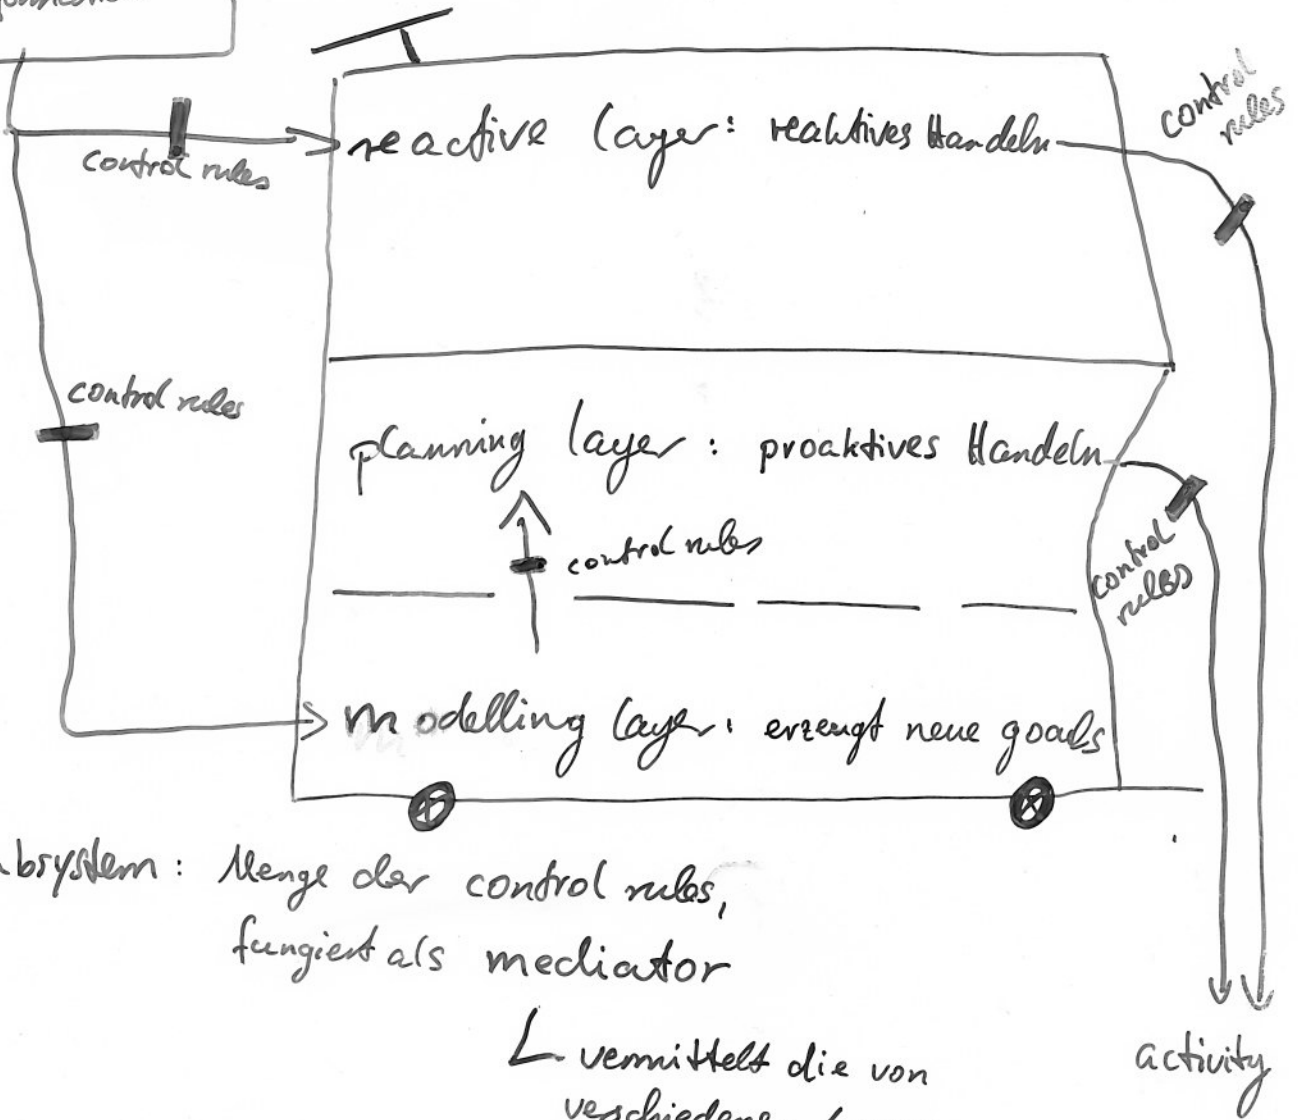 control rules
reactive layer: reaktives Handeln
control rules
control rules
planning layer: proaktives Handeln
control rules
control rules
modelling layer: erzeugt neue goals
bsystem: Menge der control rules,
fungiert als mediator
activity
vermittelt die von
verschiedene